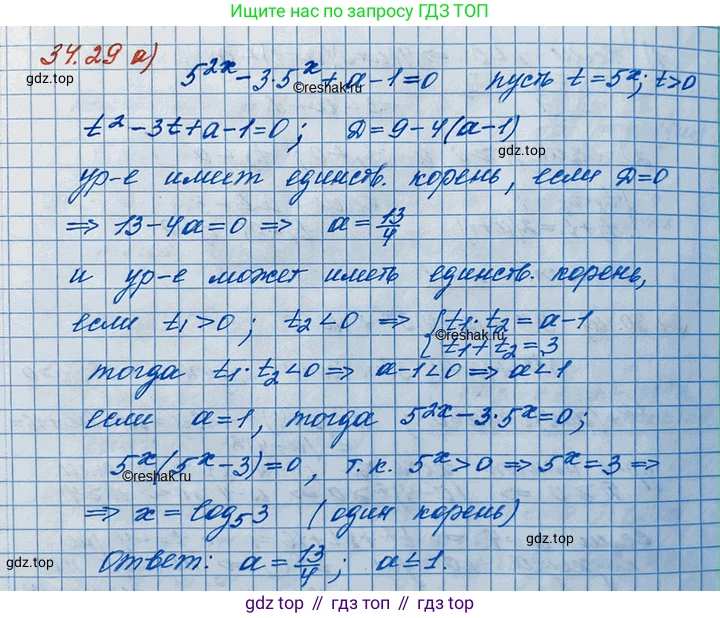 Ищите нас по запросу ГДЗ ТОП
34.29 а)
gdz.top
5^{2x} - 3·5^x + a - 1 = 0 пусть t = 5^x; t>0
©reshak.ru
t² - 3t + a - 1 = 0; D = 9 - 4(a - 1)
gdz.top
ур-е имеет единств. корень, если D=0
⇒ 13 - 4a = 0 ⇒ a = 13/4
и ур-е может иметь единств. корень,
если t₁ > 0; t₂ < 0 ⇒ { t₁·t₂ = a - 1
t₁ + t₂ = 3
©reshak.ru
тогда t₁·t₂ < 0 ⇒ a - 1 < 0 ⇒ a < 1
если a = 1, тогда 5^{2x} - 3·5^x = 0;
5^x(5^x - 3) = 0, т.к. 5^x > 0 ⇒ 5^x = 3 ⇒
©reshak.ru
⇒ x = log₅3 (один корень)
gdz.top
gdz.top
Ответ: a = 13/4; a ≤ 1.
gdz top // гдз топ // gdz top